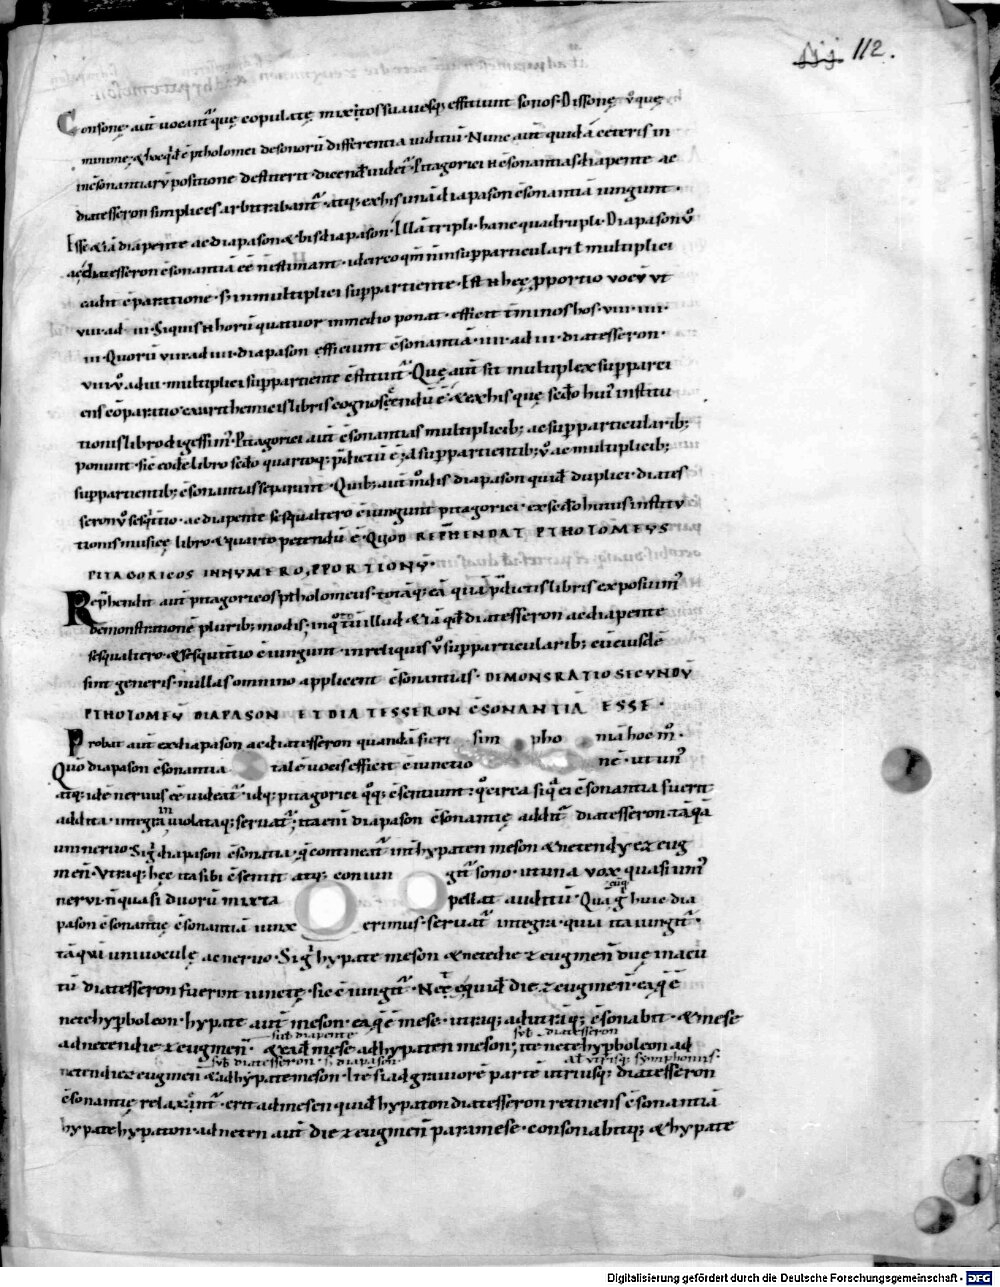 112.
Consonę aut vocant᷑ quę copulatę mixtos suavesq; efficiunt sonos. Dissonę v̊ quę
minime. & hoc qd̄ ē ptholomei de sonorū differentia iuditiū. Nunc aut quid a ceteris in
diatesseron simplices arbitrabant᷑. atq; ex his unā diapason c̄sonantiā iungunt.
Esse & iā diapente ac diapason & bis diapason. Illā tripli. hanc quadrupli. Diapason v̊
ac diatesseron c̄sonantiā eē n̄ estimant. idcirco qm̄ n̄ in supparticulari ł multiplici
cadit c̄paratione. s; in multiplici suppartiente. Est n̄ hęc pportio vocū ut
viii. ad iii. Siquis n̄ horū quatuor in medio ponat. efficit t̄minos hos. viii. iiii.
iii. Quorū viii ad iiii. diapason efficiunt c̄sonantiā. iiii ad iii. diatesseron.
viii v̊ ad iii. multiplici suppartiente c̄stituunt᷑. Quę aut sit multiplex supparci
ens cōparatio ex arithmeicis libris cognoscendū ē. & ex his quę scdo hui᷑ institu
tionis libro digessim᷑. Pitagorici aut c̄sonantias multiplicib; ac supparticularib;
ponunt. sic eodē libro scdo quartoq; p̄dictū ē. a suppartientib; v̊ ac multiplicib;
suppartientib; c̄sonantias separant. Quib; aut modis diapason quid duplici diates
seron v̊ sesq̇tio. ac diapente sesqualtero c̄iungunt pitagorici. ex scdo huius institu
tionis musicę libro & quarto petendū ē. QUOD REP̄HENDAT PTHOLOMEUS
PITAGORICOS IN NUMERO PPORTIONŪ.
Rep̄hendit aut pitagoricos ptholomeus. totāq; eā quā p̄dictis libris exposuim᷑
demonstrationē plurib; modis. inq̇ tū illud. & iā qd̄ diatesseron ac diapente
sesqualtero. & sesquitio c̄iungunt. in reliquis v̊ supparticularib; cū eiusdē
sint generis. nullas omnino applicent c̄sonantias. DEMONSRATIO SECUNDŪ
PTHOLOMEŪ DIAPASON ET DIATESSERON C̄SONANTIĀ ESSE.
Probat aut ex diapason ac diatesseron quandā fieri sim pho niā hoc m̊.
Quō diapason c̄sonantia talē vocis efficit c̄iunctio nē. ut un᷑
atq; idē nervus eē videat᷑. idq; pitagorici q̊q; c̄sentiunt. q̊circa siq̇ ei c̄sonantia fuerit
addita. integra inviolataq; servat᷑. ita enī diapason c̄sonantię addit᷑ diatesseron. tāqā
uni nervo. Sit g̊ diapason c̄sonātia. q̄ continet᷑ int̄ hypaten meson & neten dyezeug
men̄. Utraq; hęc ita sibi c̄sentit atq; coniun git᷑ sono. ut una vox quasi uni᷑
nervi. n̄ quasi duorū mixta pellat auditū. Quācūq; g̊ huic dia
pason c̄sonantię c̄sonantiā iunx erimus. servat᷑ integra. quia ita iungit᷑.
tāqā uni voculę ac nervo. Sit g̊ hypate meson & nete diezeugmen̄ duę in acu
tū diatesseron fueron iunctę. sic c̄iungit᷑.
nete hyp̄boleon. hypate aut meson. ea q̄ ē mese. utraq; ad utrāq; c̄sonabit. & mese
sub diapente sub diatesseron
ad neten diezeugmen̄. & eid̄ mese ad hypaten meson; ite nete hyp̄boleon ad
sub diatesseron
neten diezeugmen̄ & ad hypate meson. Ite si ad graviorē partē utriusq; diatesseron
c̄sonantię relaxent᷑. erit ad mesen quid̄ hypaton diatesseron retinens c̄sonantiā
hypate hypaton. ad neten aut diezeugmen̄ paramese. consonabitq; & hypate
Digitalisierung gefördert durch die Deutsche Forschungsgemeinschaft - DFG